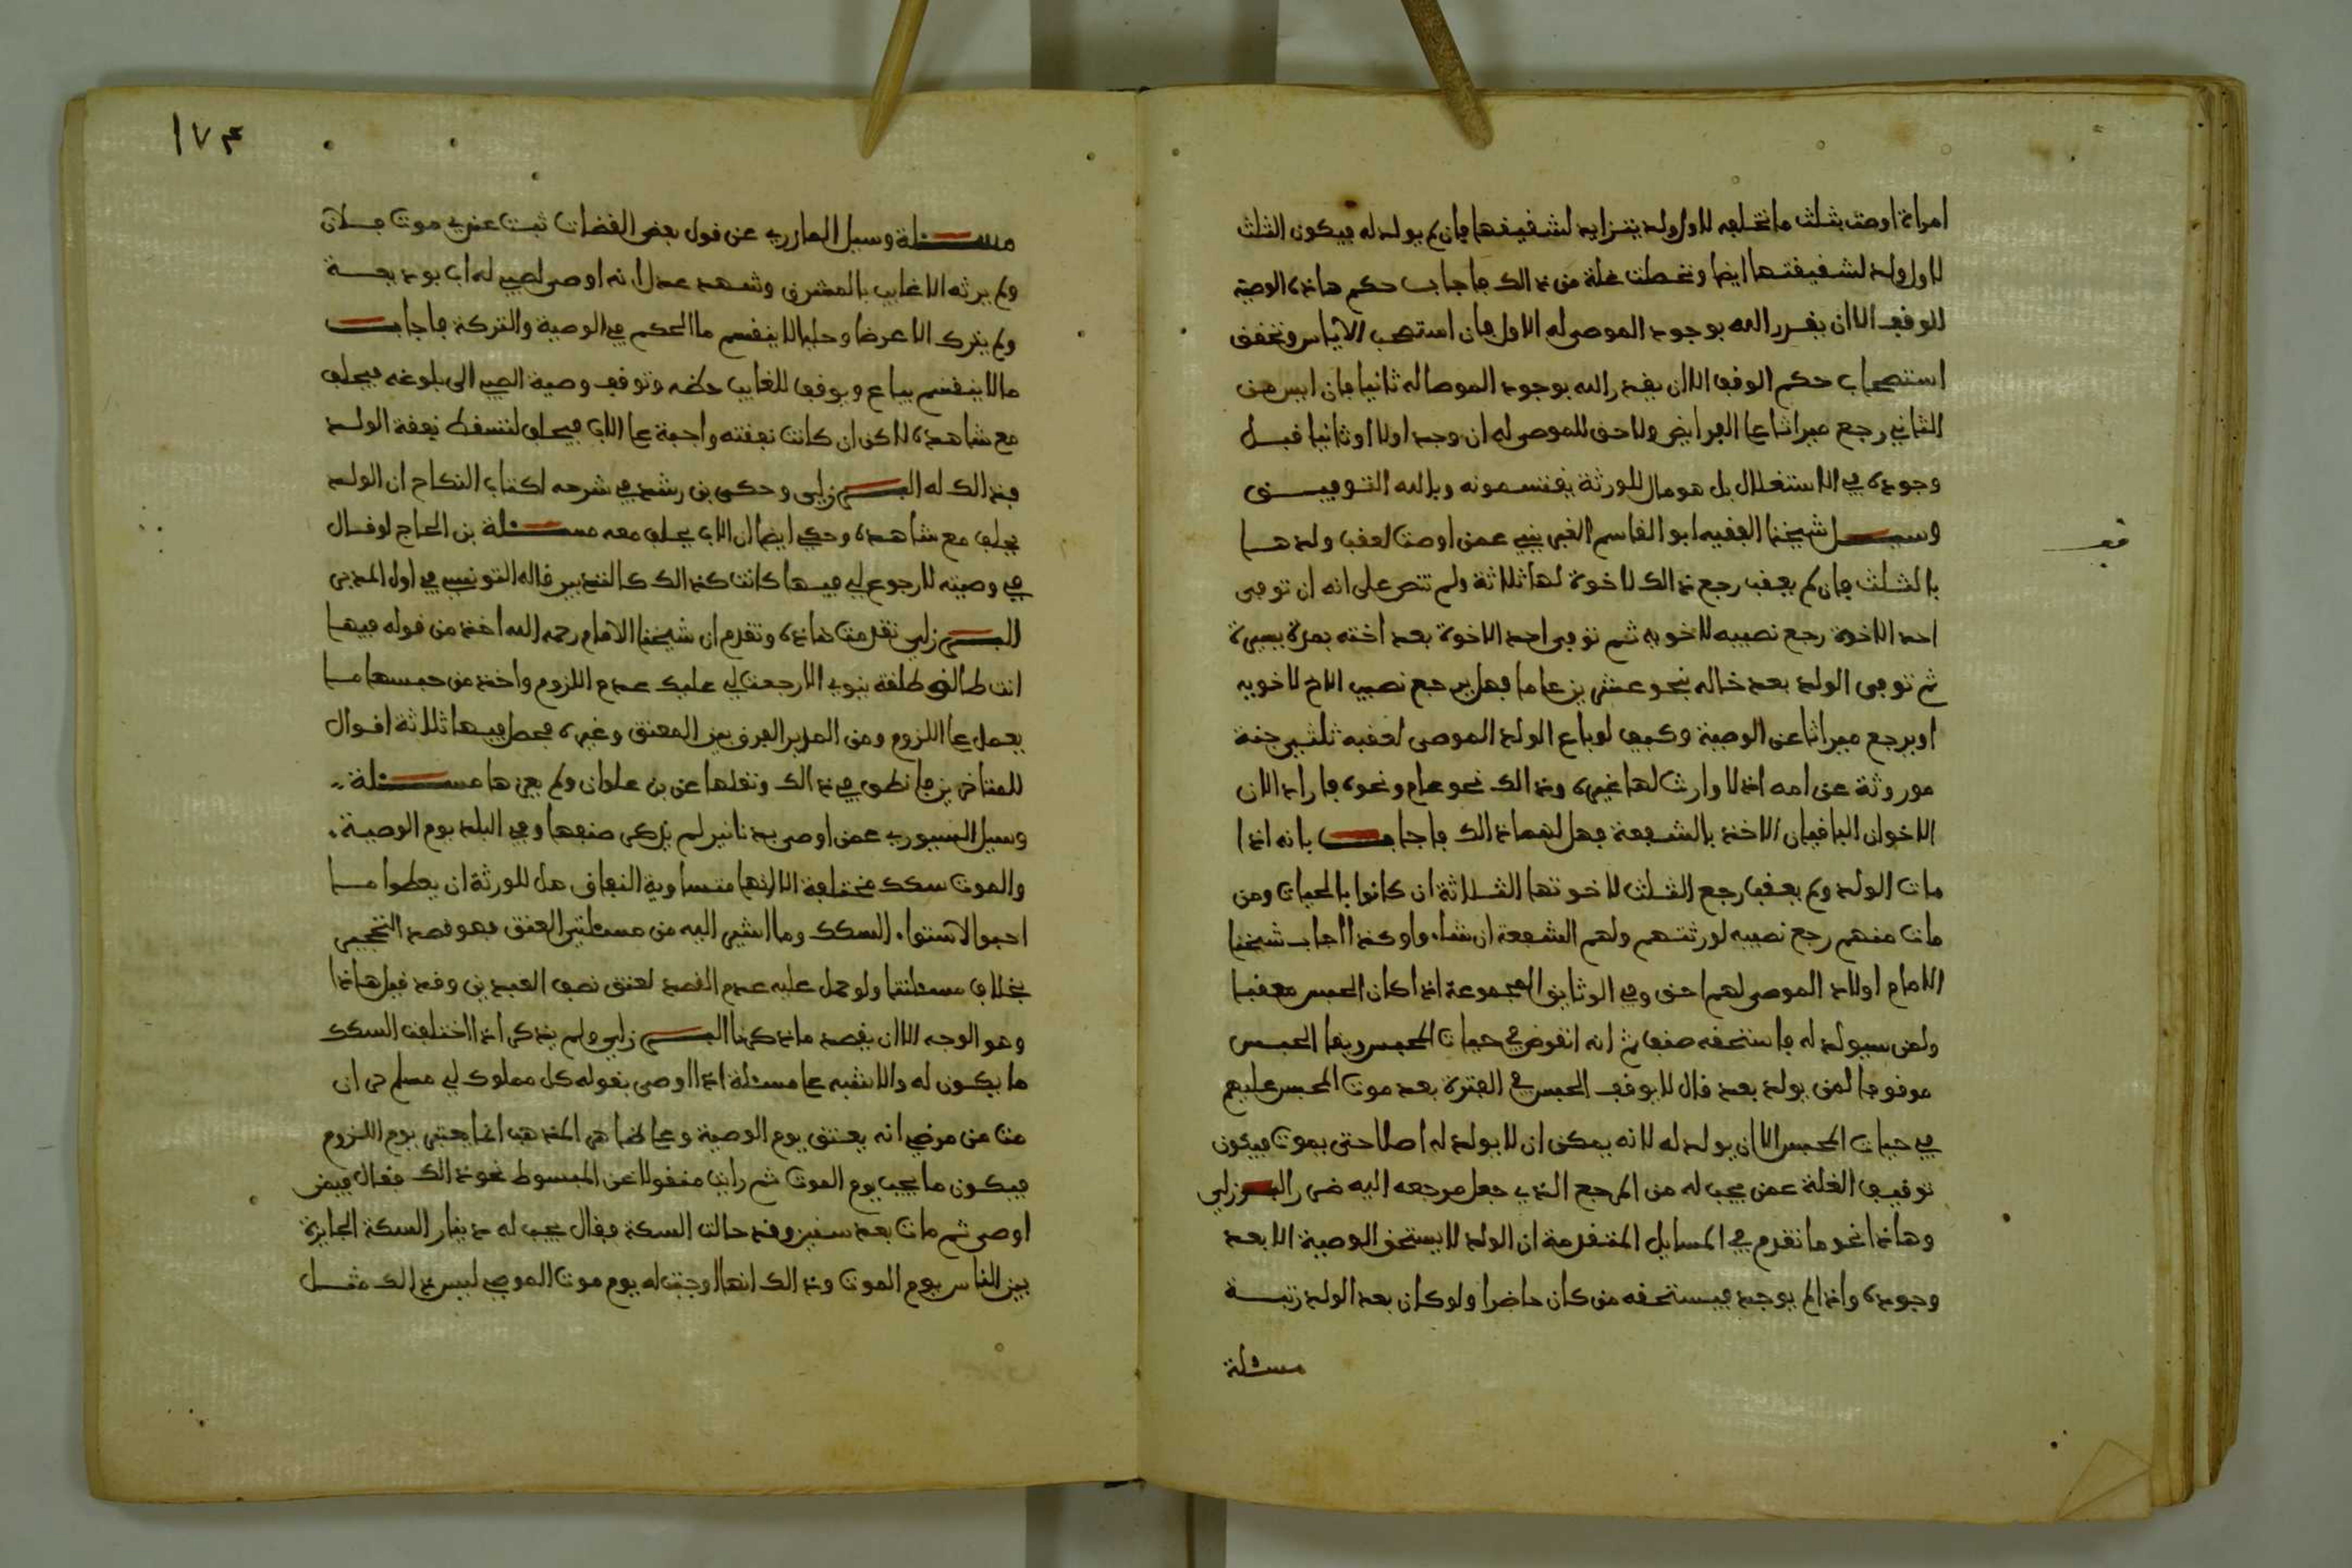 امراة اوصت بثلث ما تخلفه لاول ولد يتزايد لشقيقها فان لم يولد له فيكون الثلث
لاول ولد لشقيقتها ايضا وتحصلت غلة من ذالك فاجاب حكم هاذه الوصية
الوقف الا ان يقدر الله بوجود الموصى له الاول فان استصحب الاياس وتحقق
استصحاب حكم الوقف الا ان يقدر الله بوجود الموصا له ثانيا فان ايس من
الثاني رجع ميراثا على الفرايض ولا حق للموصى له ان وجد اولا او ثانيا قبل
وجوده في الاستغلال بل هو مال للورثة يقتسمونه وبالله التوفيق
وسيل شيخنا الفقيه ابو القاسم الغبريني عمن اوصت لعقب ولدها
بالثلث فان لم يعقب رجع ذالك لاخوة لها ثلاثة ولم تنص على انه ان توفي
احد الاخوة رجع نصيبه لاخويه ثم توفي احد الاخوة بعد اخته بمدة يسيرة
ثم توفي الولد بعد خاله بنحو عشرين عاما فهل يرجع نصيب الاخ لاخويه
او يرجع ميراثا عن الوصية وكيف لو باع الولد الموصى لعقبه ثلثي جنة
موروثة عن امه اذ لا وارث لها غيره وذالك نحو عام ونحوه فاراد الان
الاخوان الباقيان الاخذ بالشفعة فهل لهما ذالك فاجاب بانه اذا
مات الولد ولم يعقب رجع الثلث لاخوتها الثلاثة ان كانوا بالحيات ومن
مات منهم رجع نصيبه لورثتهم ولهم الشفعة ان شاءوا وكذا اجاب شيخنا
الامام اولاد الموصى لهم احق وفي الوثايق المجموعة اذا كان الحبس معقبا
ولمن سيولد له فاستحقه صنف ثم انه انقرض في حيات المحبس وبقا الحبس
موقوفا لمن يولد بعد قال لا يوقف الحبس في الفترة بعد موت المحبس عليهم
في حيات المحبس الا ان يولد له لانه يمكن ان لا يولد له اصلا حتى يموت فيكون
توقيف الغلة عمن يجب له من المرجع الذي جعل مرجعه اليه ضرر البرزلي
وهاذا نحو ما تقدم في المسايل المتقدمة ان الولد لا يستحق الوصية الا بعد
وجوده واذا لم يوجد فيستحقه من كان حاضرا ولو كان بعد الولد رتبة
مسئلة
قف
١٧٣
مسئلة وسيل المازري عن قول بعض القضات ثبت عندي موت فلان
ولم يرثه الا غايب بالمشرق وشهد عدل انه اوصى لصبي له اب بوديعة
ولم يترك الا عرضا وحليا لا ينقسم ما الحكم في الوصية والتركة فاجاب
ما لا ينقسم يباع ويوقف للغايب حظه وتوقف وصية الصبي الى بلوغه فيحلف
مع شاهده لاكن ان كانت نفقته واجبة على الاب فيحلف لتسقط نفقة الولد
فذالك له البرزلي وحكى بن رشد في شرحه لكتاب النكاح ان الولد
يحلف مع شاهده وحكي ايضا ان الاب يحلف معه مسئلة بن الحاج لو قال
في وصيته لا رجوع لي فيها كانت كذالك كالتدبير قاله التونسي في اول المدبر
البرزلي تقدمت هاذه وتقدم ان شيخنا الامام رحمه الله اخذ من قوله فيها
انت طالق طلقة ينوي لا رجعة لي عليك عدم اللزوم واخذ من حبسها ما
يحمل على اللزوم ومن المدبر الفرق بين المعتق وغيره فحصل فيها ثلاثة اقوال
للمتاخرين فانظره في ذالك ونقلها عن بن علوان ولم يعزها مسئلة
وسيل السيوري عمن اوصى بدنانير لم يذكر صنفها وفي البلد يوم الوصية
والموت سكك مختلفة الا انها متساوية النفاق هل للورثة ان يعطوا ما
احبوا لاستواء السكك وما اشير اليه من مسئلتي العتق فهو قصد التخيير
بخلاف مسئلتنا ولو حمل عليه عدم القصد لعتق نصف العبدين وقد قيل هاذا
وهو الوجه الا ان يقصد ما ذكرنا البرزلي ولم يذكر اذا اختلفت السكك
ما يكون له والاشبه على مسئلة اذا اوصى بقوله كل مملوك لي مسلم حر ان
مت من مرضي انه يعتق يوم الوصية وعلى ظاهر المذهب انما يعتبر يوم اللزوم
فيكون ما يجب يوم الموت ثم رايت منقولا عن المبسوط نحو ذالك فقال فيمن
اوصى ثم مات بعد سنين وقد حالت السكة فقال يجب له دينار السكة الجايزة
بين الناس يوم الموت وذالك انها وجبت له يوم موت الموصي ليس ذالك مثل